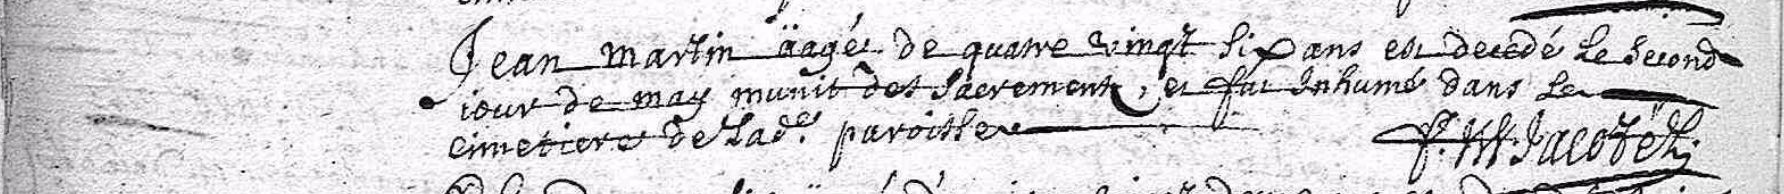 Jean martin äagé de quatre vingt six ans est decedé le second
iour de may munit des sacrements, et fut inhumé dans le
cimetiere de lad.e paroisse